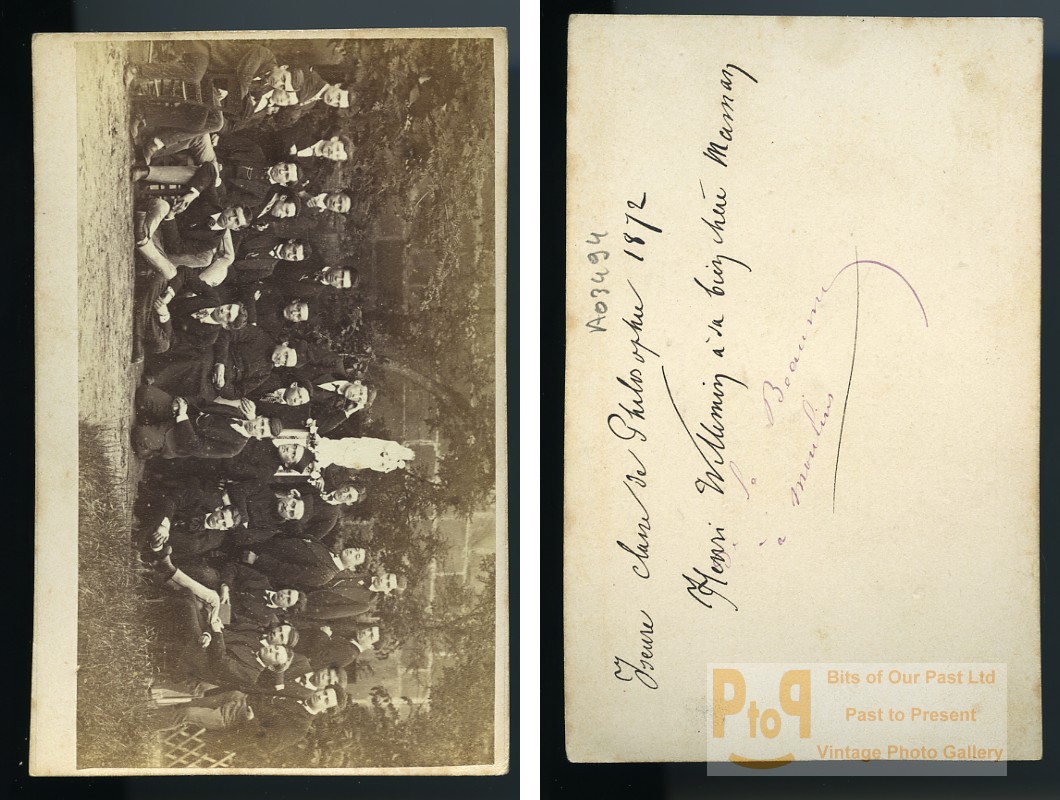 Iseure classe de Philosophie 1872
Henri Willemin à sa bien chère Maman
A03494
Le Beaume
à moulins
PtoP
Bits of Our Past Ltd
Past to Present
Vintage Photo Gallery